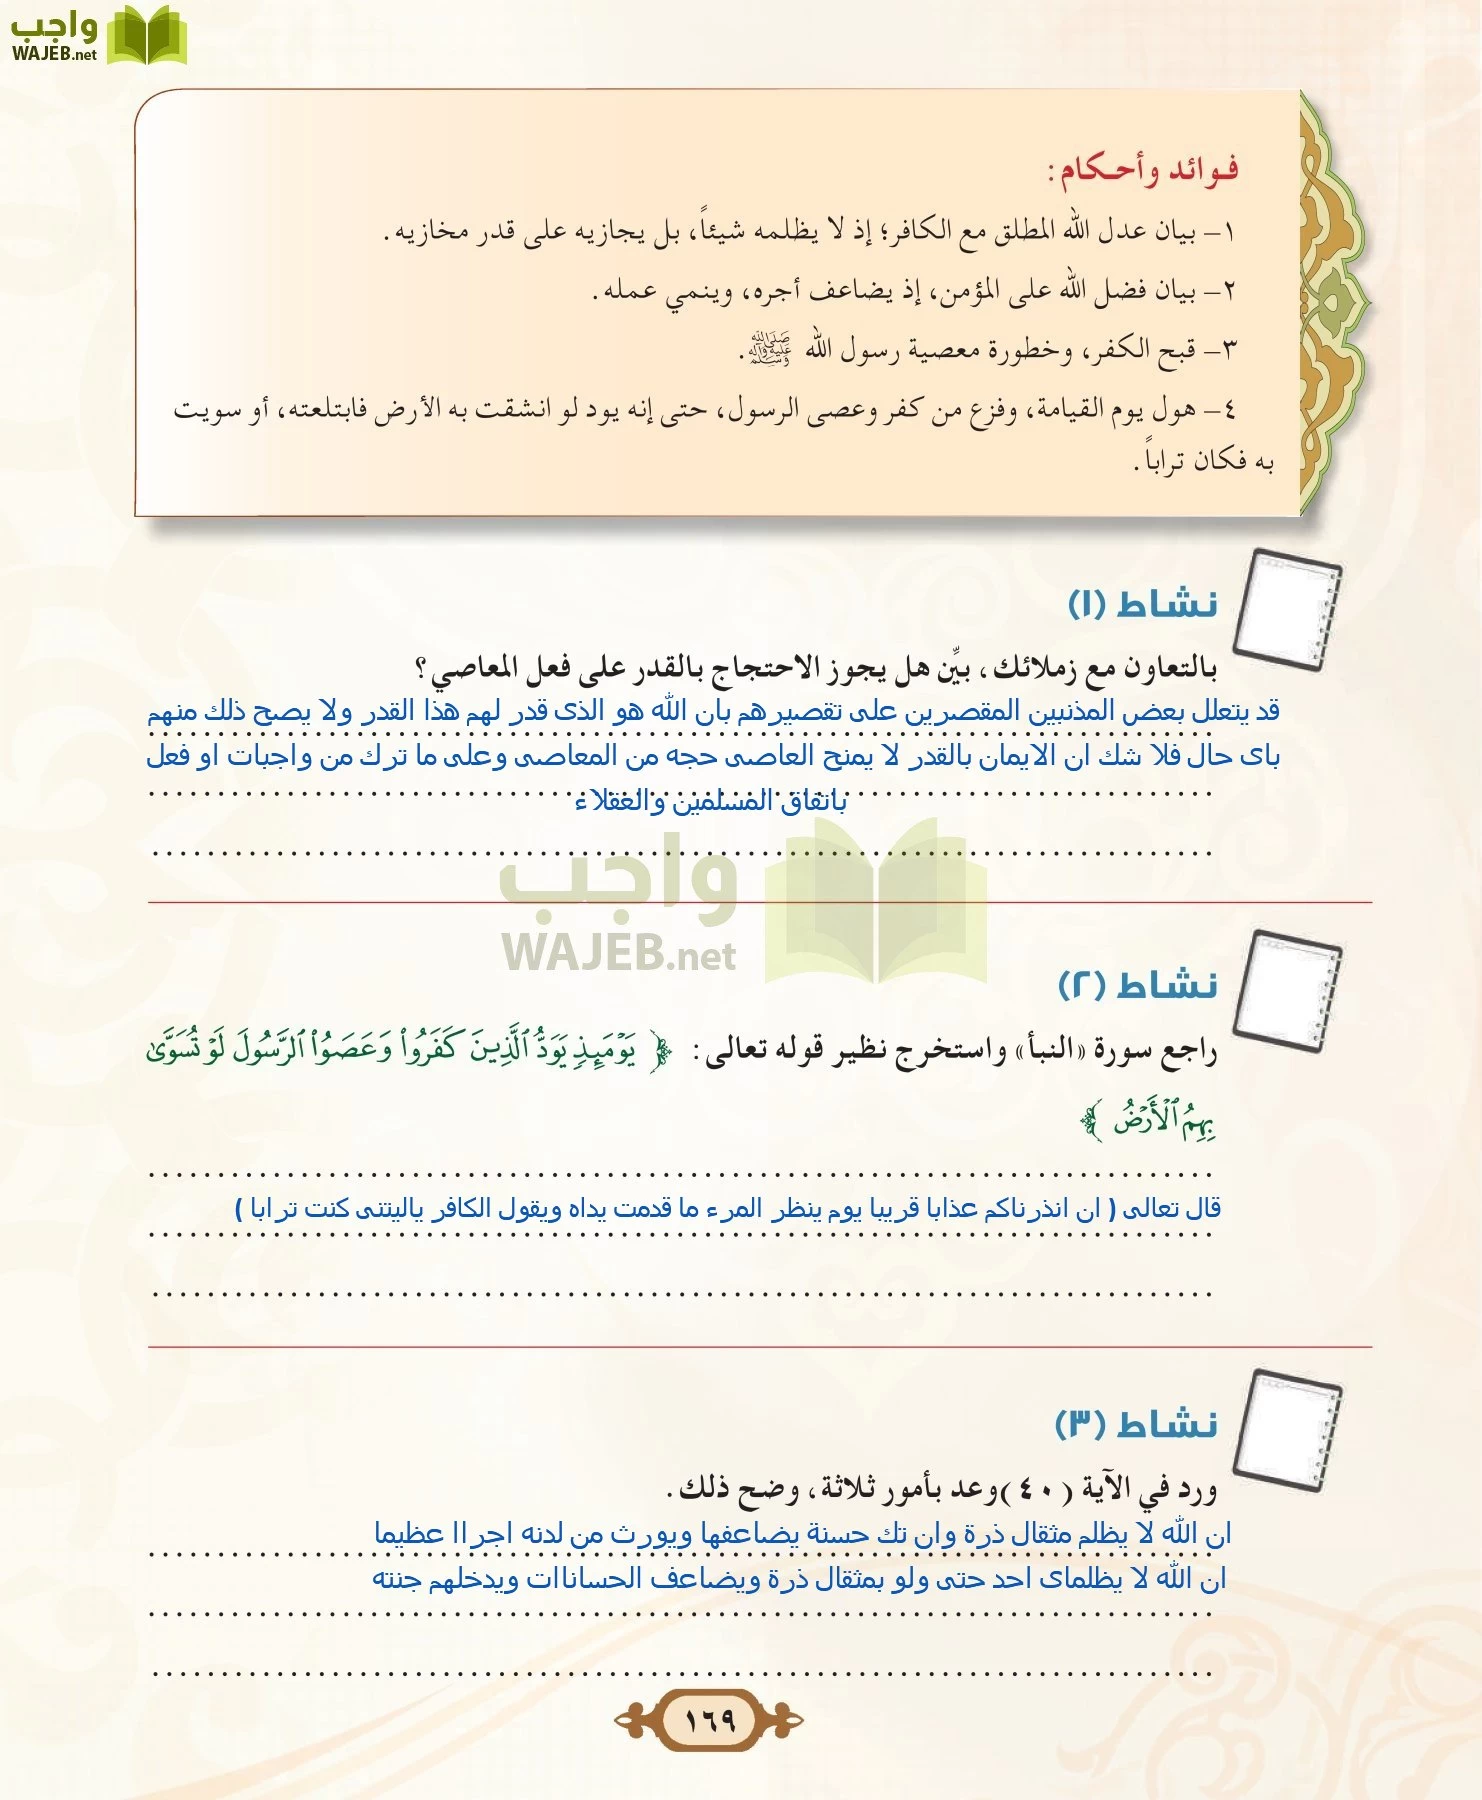 واجب
WAJEB.net
فـوائد وأحـكام:
١– بيان عدل الله المطلق مع الكافر؛ إذ لا يظلمه شيئاً، بل يجازيه على قدر مخازيه.
٢– بيان فضل الله على المؤمن، إذ يضاعف أجره، وينمي عمله.
٣– قبح الكفر، وخطورة معصية رسول الله ﷺ.
٤– هول يوم القيامة، وفزع من كفر وعصى الرسول، حتى إنه يود لو انشقت به الأرض فابتلعته، أو سويت
به فكان تراباً.
نشاط (١)
بالتعاون مع زملائك، بيِّن هل يجوز الاحتجاج بالقدر على فعل المعاصي؟
قد يتعلل بعض المذنبين المقصرين على تقصيرهم بان الله هو الذى قدر لهم هذا القدر ولا يصح ذلك منهم
باى حال فلا شك ان الايمان بالقدر لا يمنح العاصى حجه من المعاصى وعلى ما ترك من واجبات او فعل
باتفاق المسلمين والعقلاء
واجب
WAJEB.net
نشاط (٢)
راجع سورة «النبأ» واستخرج نظير قوله تعالى: ﴿ يَوْمَئِذٍ يَوَدُّ ٱلَّذِينَ كَفَرُواْ وَعَصَوُاْ ٱلرَّسُولَ لَوْ تُسَوَّىٰ
بِهِمُ ٱلْأَرْضُ ﴾
قال تعالى ( ان انذرناكم عذابا قريبا يوم ينظر المرء ما قدمت يداه ويقول الكافر ياليتنى كنت ترابا )
نشاط (٣)
ورد في الآية (٤٠)وعد بأمور ثلاثة، وضح ذلك.
ان الله لا يظلم مثقال ذرة وان تك حسنة يضاعفها ويورث من لدنه اجراا عظيما
ان الله لا يظلماى احد حتى ولو بمثقال ذرة ويضاعف الحساناات ويدخلهم جنته
١٦٩